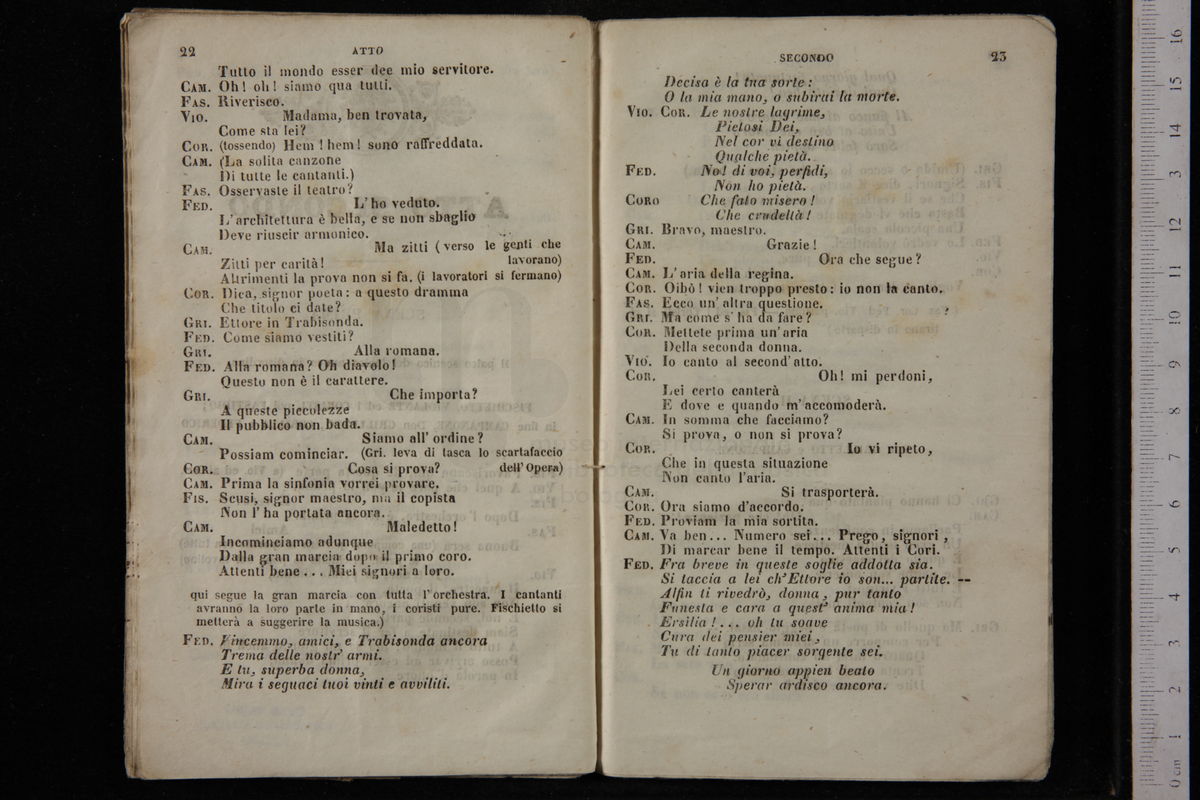 22 ATTO
Tutto il mondo esser dee mio servitore.
CAM. Oh! oh! siamo qua tutti.
FAS. Riverisco.
VIO. Madama, ben trovata,
Come sta lei?
COR. (tossendo) Hem! hem! sono raffreddata.
CAM. (La solita canzone
Di tutte le cantanti.)
FAS. Osservaste il teatro?
FED. L'ho veduto.
L'architettura è bella, e se non sbaglio
Deve riuscir armonico.
CAM. Ma zitti (verso le genti che
Zitti per carità! lavorano)
Altrimenti la prova non si fa. (i lavoratori si fermano)
COR. Dica, signor poeta: a questo dramma
Che titolo ci date?
GRI. Ettore in Trabisonda.
FED. Come siamo vestiti?
GRI. Alla romana.
FED. Alla romana? Oh diavolo!
Questo non è il carattere.
GRI. Che importa?
A queste piccolezze
Il pubblico non bada.
CAM. Siamo all' ordine?
Possiam cominciar. (Gri. leva di tasca lo scartafaccio
COR. Cosa si prova? dell' Opera)
CAM. Prima la sinfonia vorrei provare.
FIS. Scusi, signor maestro, ma il copista
Non l' ha portata ancora.
CAM. Maledetto!
Incominciamo adunque
Dalla gran marcia dopo il primo coro.
Attenti bene... Miei signori a loro.
qui segue la gran marcia con tutta l'orchestra. I cantanti
avranno la loro parte in mano, i coristi pure. Fischietto si
metterà a suggerire la musica.)
FED. Vincemmo, amici, e Trabisonda ancora
Trema delle nostr' armi.
E tu, superba donna,
Mira i seguaci tuoi vinti e avviliti.
SECONDO 23
Decisa è la tua sorte:
O la mia mano, o subirai la morte.
VIO. COR. Le nostre lagrime,
Pietosi Dei,
Nel cor vi destino
Qualche pietà.
FED. No! di voi, perfidi,
Non ho pietà.
CORO Che fato misero!
Che crudeltà!
GRI. Bravo, maestro.
CAM. Grazie!
FED. Ora che segue?
CAM. L'aria della regina.
COR. Oibò! vien troppo presto: io non la canto.
FAS. Ecco un' altra questione.
GRI. Ma come s' ha da fare?
COR. Mettete prima un' aria
Della seconda donna.
VIO. Io canto al second' atto.
COR. Oh! mi perdoni,
Lei certo canterà
E dove e quando m' accomoderà.
CAM. In somma che facciamo?
Si prova, o non si prova?
COR. Io vi ripeto,
Che in questa situazione
Non canto l'aria.
CAM. Si trasporterà.
COR. Ora siamo d'accordo.
FED. Proviam la mia sortita.
CAM. Va ben... Numero sei... Prego, signori,
Di marcar bene il tempo. Attenti i Cori.
FED. Fra breve in queste soglie addotta sia.
Si taccia a lei ch'Ettore io son... partite. --
Alfin ti rivedrò, donna, pur tanto
Funesta e cara a quest' anima mia!
Ersilia!... oh tu soave
Cura dei pensier miei,
Tu di tanto piacer sorgente sei.
Un giorno appien beato
Sperar ardisco ancora.
0 cm 1 2 3 4 5 6 7 8 9 10 11 12 13 14 15 16